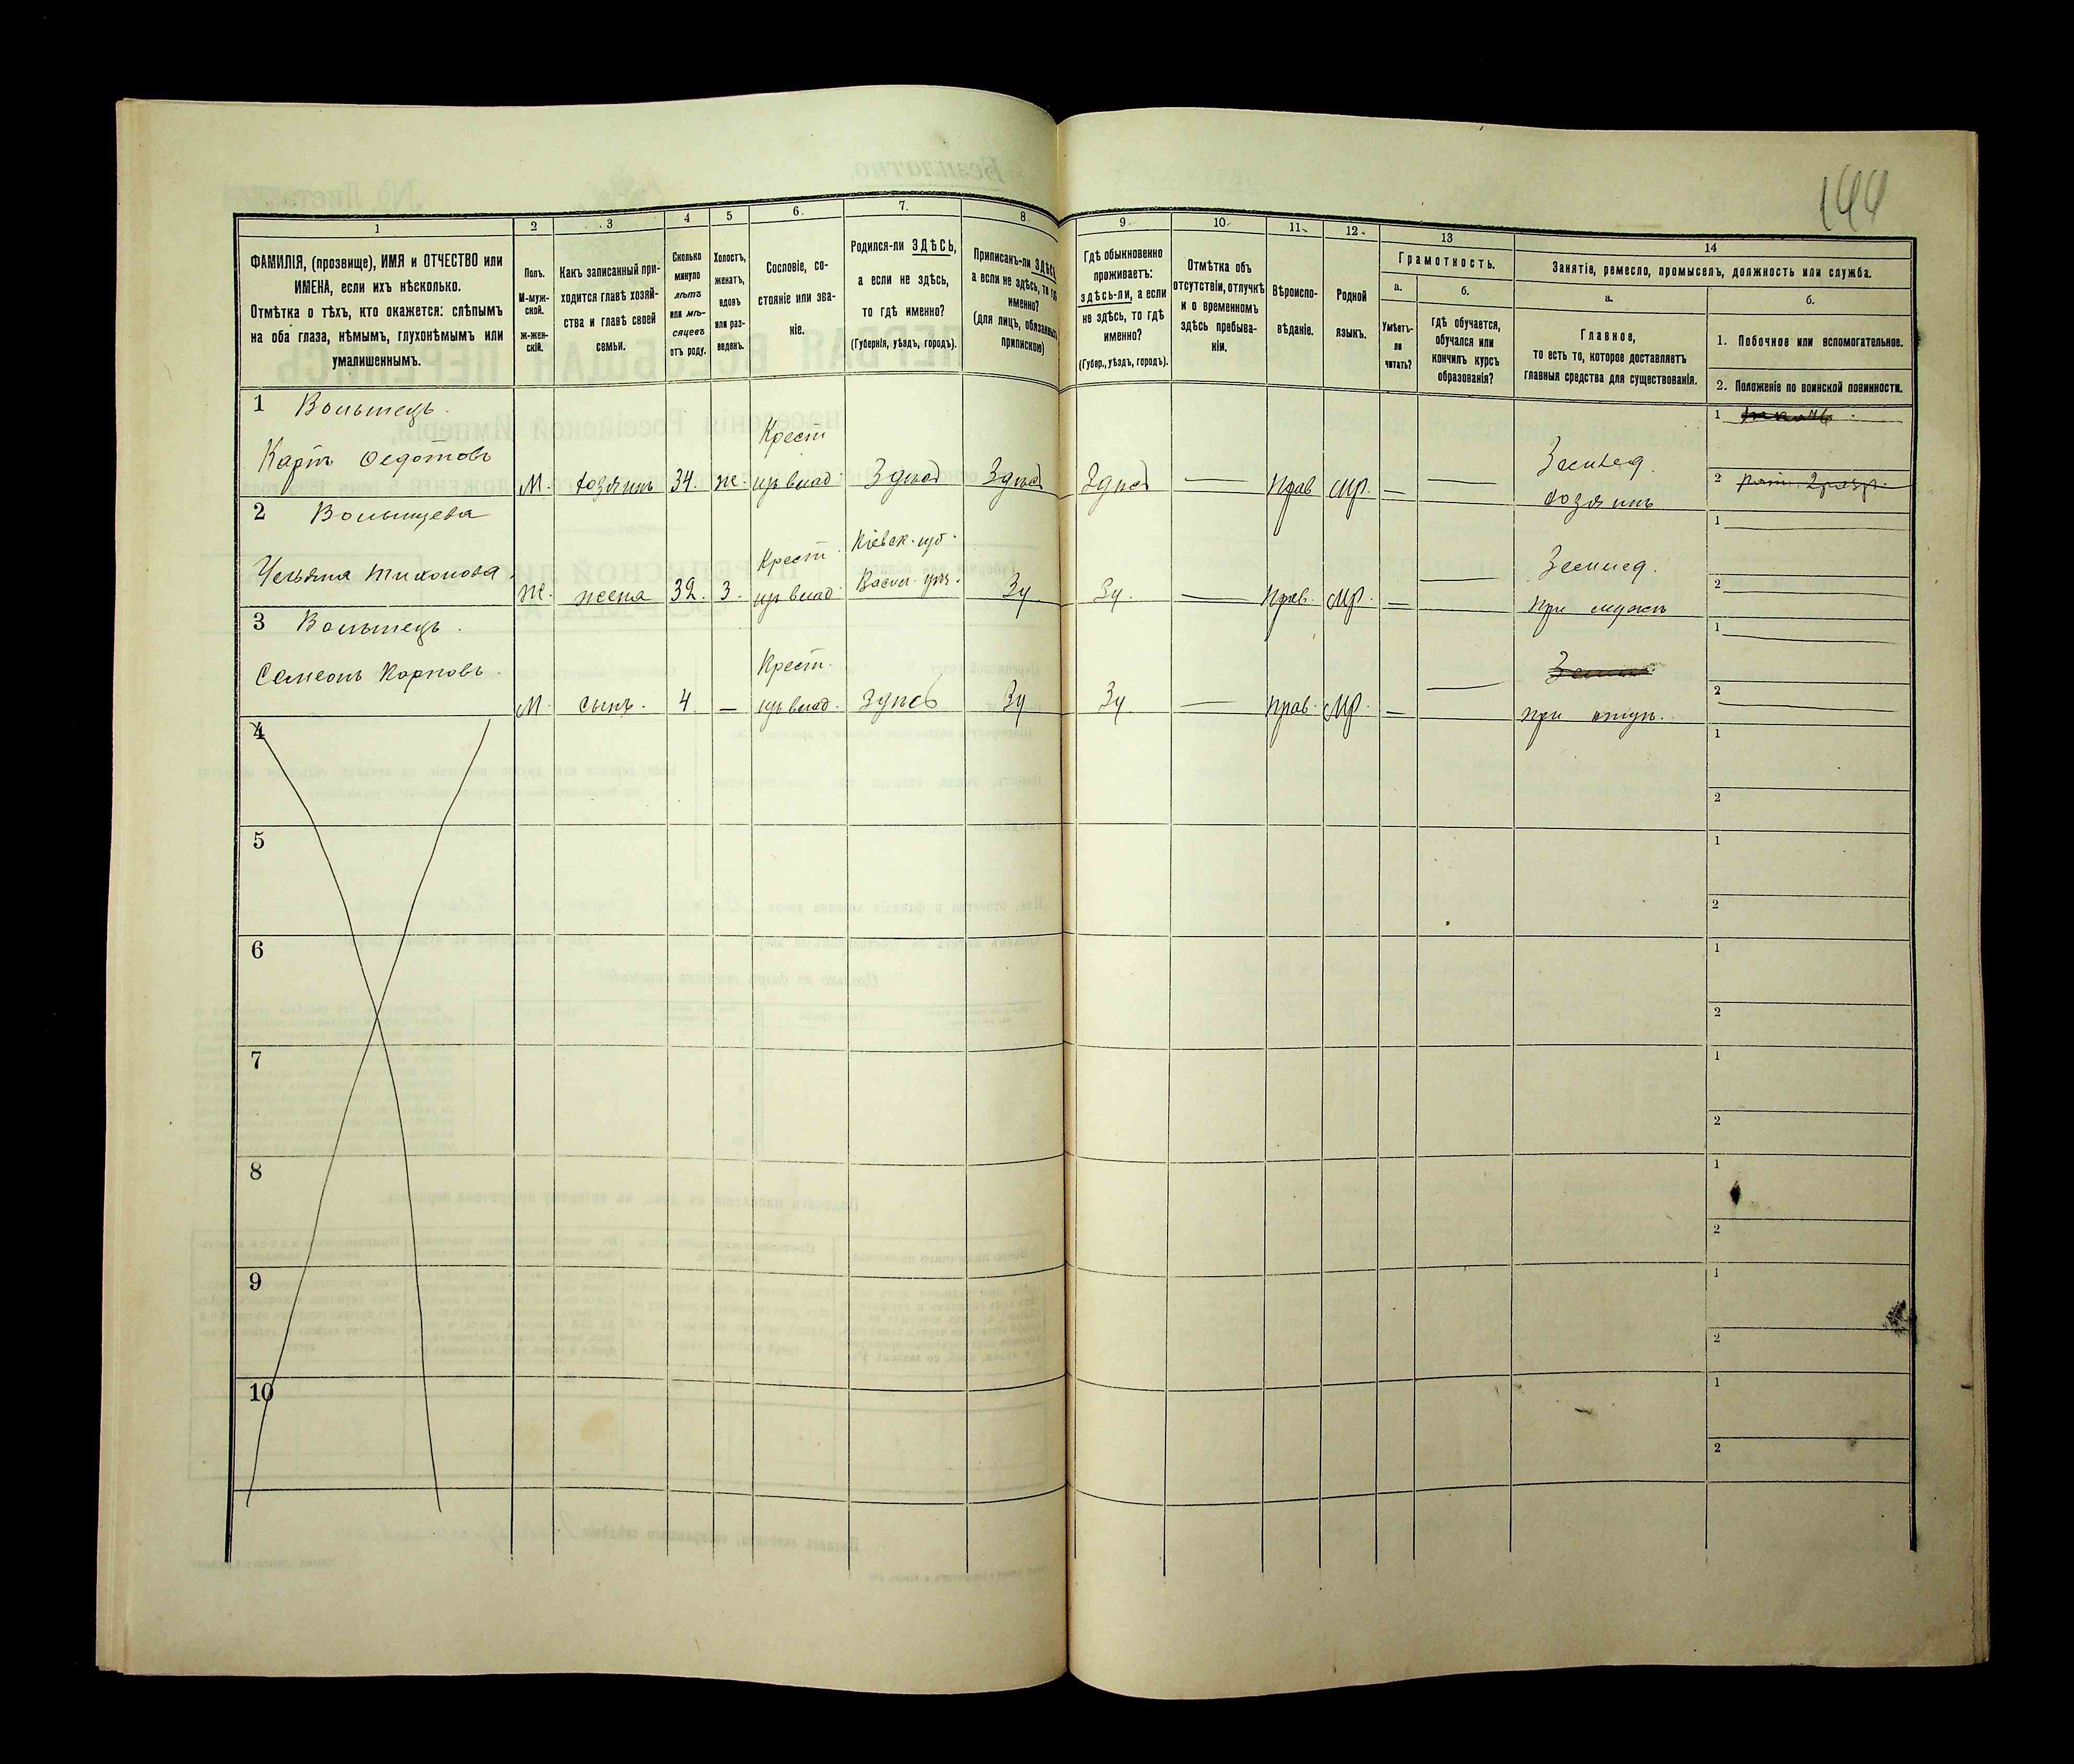 144
1
2
3
4
5
6.
7.
8.
9.
10.
11.
12.
13
14
ФАМИЛІЯ, (прозвище), ИМЯ и ОТЧЕСТВО или
ИМЕНА, если ихъ нѣсколько.
Отмѣтка о тѣхъ, кто окажется: слѣпымъ
на оба глаза, нѣмымъ, глухонѣмымъ или
умалишеннымъ.
Полъ.
М-муж-
ской.
ж-жен-
скій.
Какъ записанный при-
ходится главѣ хозяй-
ства и главѣ своей
семьи.
Сколько
минуло
лѣтъ
или мѣ-
сяцевъ
отъ роду.
Холостъ,
женатъ,
вдовъ
или раз-
веденъ.
Сословіе, со-
стояніе или зва-
ніе.
Родился-ли ЗДѢСЬ,
а если не здѣсь,
то гдѣ именно?
(Губернія, уѣздъ, городъ).
Приписанъ-ли ЗДѢСЬ
а если не здѣсь, то гдѣ
именно?
(для лицъ, обязанныхъ
припискою)
Гдѣ обыкновенно
проживаетъ:
здѣсь-ли, а если
не здѣсь, то гдѣ
именно?
(Губер., уѣздъ, городъ).
Отмѣтка объ
отсутствіи, отлучкѣ
и о временномъ
здѣсь пребыва-
ніи.
Вѣроиспо-
вѣданіе.
Родной
языкъ.
Грамотность.
а.
Умѣетъ-
ли
читать?
б.
гдѣ обучается,
обучался или
кончилъ курсъ
образованія?
Занятіе, ремесло, промыселъ, должность или служба.
а.
Главное,
то есть то, которое доставляетъ
главныя средства для существованія.
б.
1. Побочное или вспомогательное.
2. Положеніе по воинской повинности.
1 Волынецъ.
Карпъ Ѳедотовъ
М. хозяинъ 34. ж. Крест
из влад. Здѣсь Здѣсь Здѣсь — прав мр. — —
Землед.
хозяинъ
1
2 рат. 2 разр.
2 Волынцева
Ульяна Тихонова
ж. жена 32. З. Крест.
из влад. Кіевск. губ.
Васил. уѣз. Зд Зд. — прав. мр. — —
Землед.
при мужѣ
1
2
3 Волынецъ.
Семеонъ Карповъ.
М. сынъ. 4. — Крест.
из влад. Здѣсь Зд Зд — прав. мр. — —
при отцѣ.
1
2
4
1
2
5
1
2
6
1
2
7
1
2
8
1
2
9
1
2
10
1
2